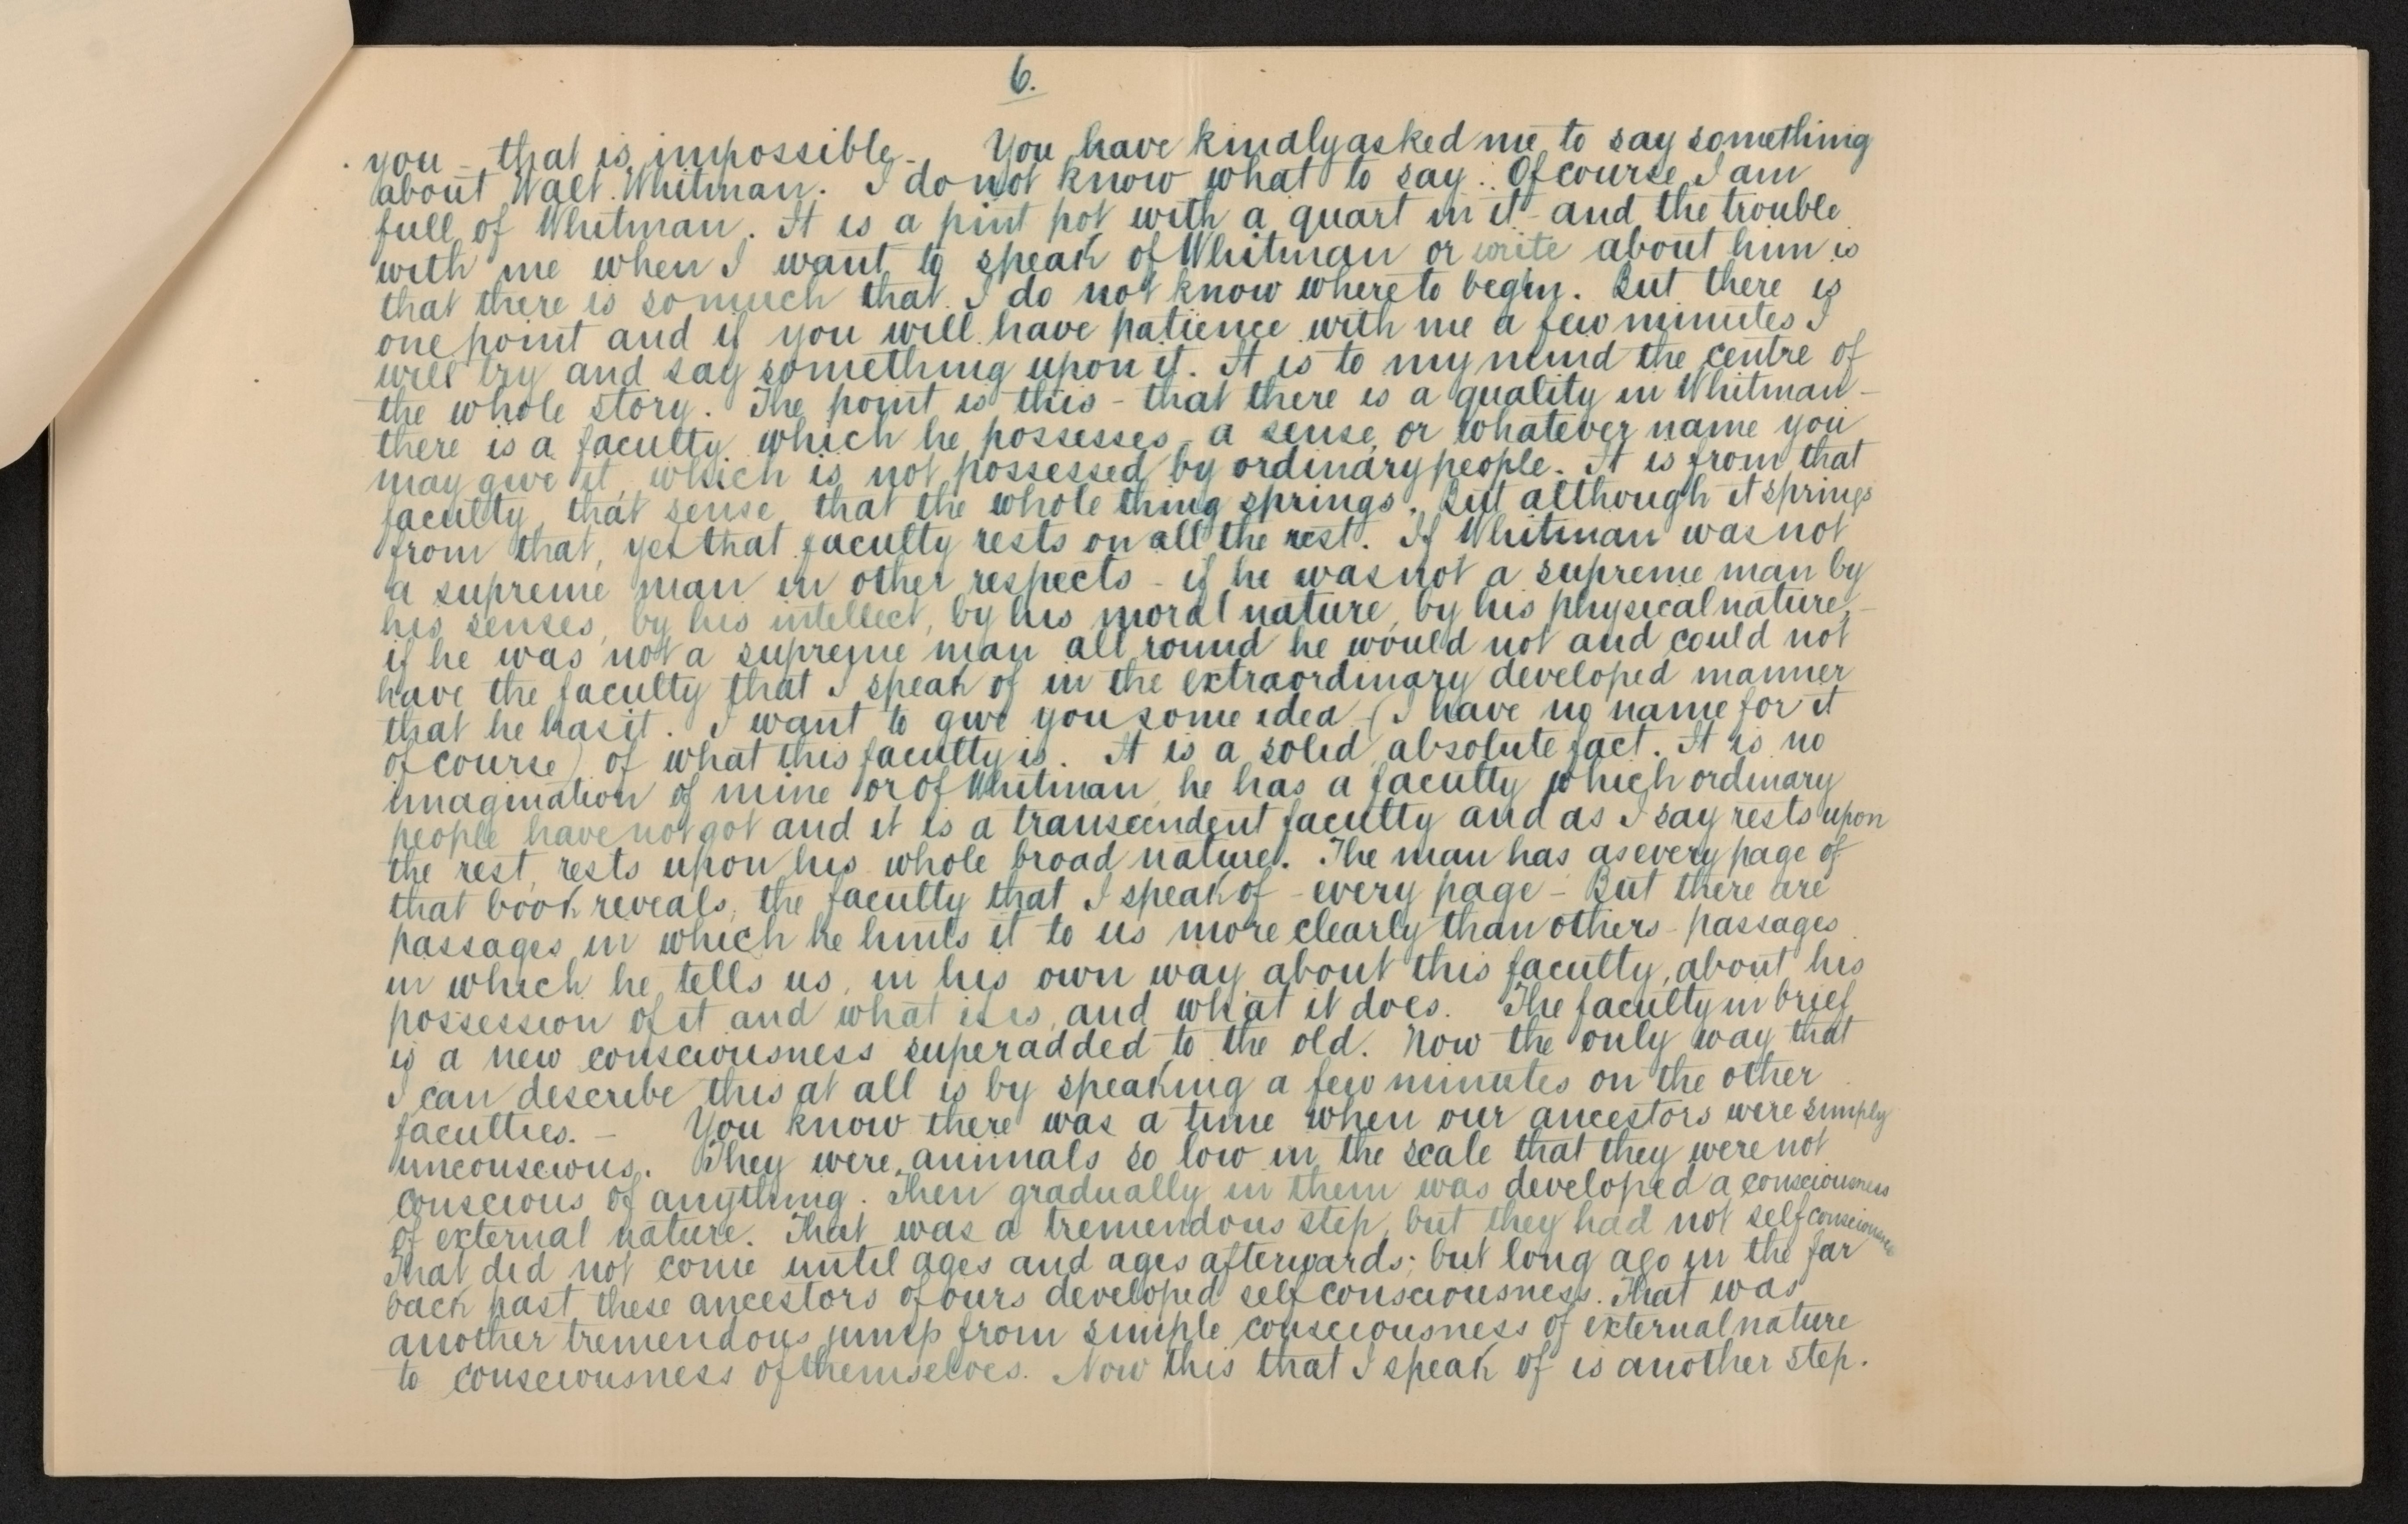 6.
you - that is impossible. You have kindly asked me to say something
about Walt Whitman. I do not know what to say. Of course I am
full of Whitman. It is a pint pot with a quart in it - and the trouble
with me when I want to speak of Whitman or write about him is
that there is so much that I do not know where to begin. But there is
one point and if you will have patience with me a few minutes I
will try and say something upon it. It is to my mind the centre of
the whole story. The point is this - that there is a quality in Whitman -
there is a faculty which he possesses, a sense, or whatever name you
may give it, which is not possessed by ordinary people. It is from that
faculty, that sense, that the whole thing springs. But although it springs
from that, yet that faculty rests on all the rest. If Whitman was not
a supreme man in other respects - if he was not a supreme man by
his senses, by his intellect, by his moral nature, by his physical nature, -
if he was not a supreme man all round he would not and could not
have the faculty that I speak of in the extraordinary developed manner
that he has it. I want to give you some idea (I have no name for it
of course) of what this faculty is. It is a solid, absolute fact. It is no
imagination of mine or of Whitman, he has a faculty which ordinary
people have not got and it is a transcendent faculty and as I say rests upon
the rest, rests upon his whole broad nature. The man has, as every page of
that book reveals, the faculty that I speak of - every page - But there are
passages in which he hints it to us more clearly than others - passages
in which he tells us, in his own way, about this faculty, about his
possession of it and what it is, and what it does. The faculty in brief
is a new consciousness superadded to the old. Now the only way that
I can describe this at all is by speaking a few minutes on the other
faculties. - You know there was a time when our ancestors were simply
unconscious. They were animals so low in the scale that they were not
conscious of anything. Then gradually in them was developed a consciousness
of external nature. That was a tremendous step, but they had not self consciousness
That did not come until ages and ages afterwards; but long ago in the far
back past, these ancestors of ours developed self consciousness. That was
another tremendous jump from simple consciousness of external nature
to consciousness of themselves. Now this that I speak of is another step.